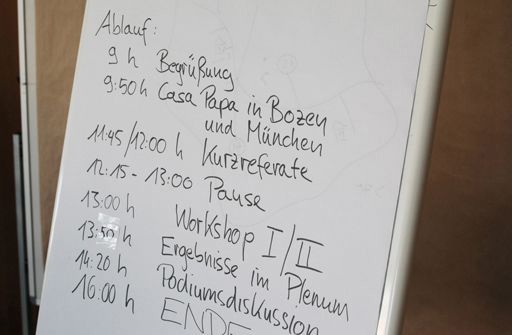 Ablauf:
9 h Begrüßung
9:50 h Casa Papa in Bozen
und München
11:45/12:00 h Kurzreferate
12:15 - 13:00 Pause
13:00 h Workshop I/II
13:50 h Ergebnisse im Plenum
14:20 h Podiumsdiskussion
16:00 h ENDE